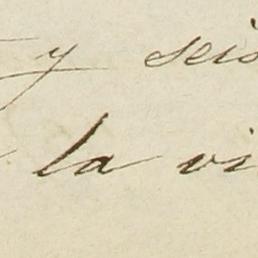 y seis
la vi